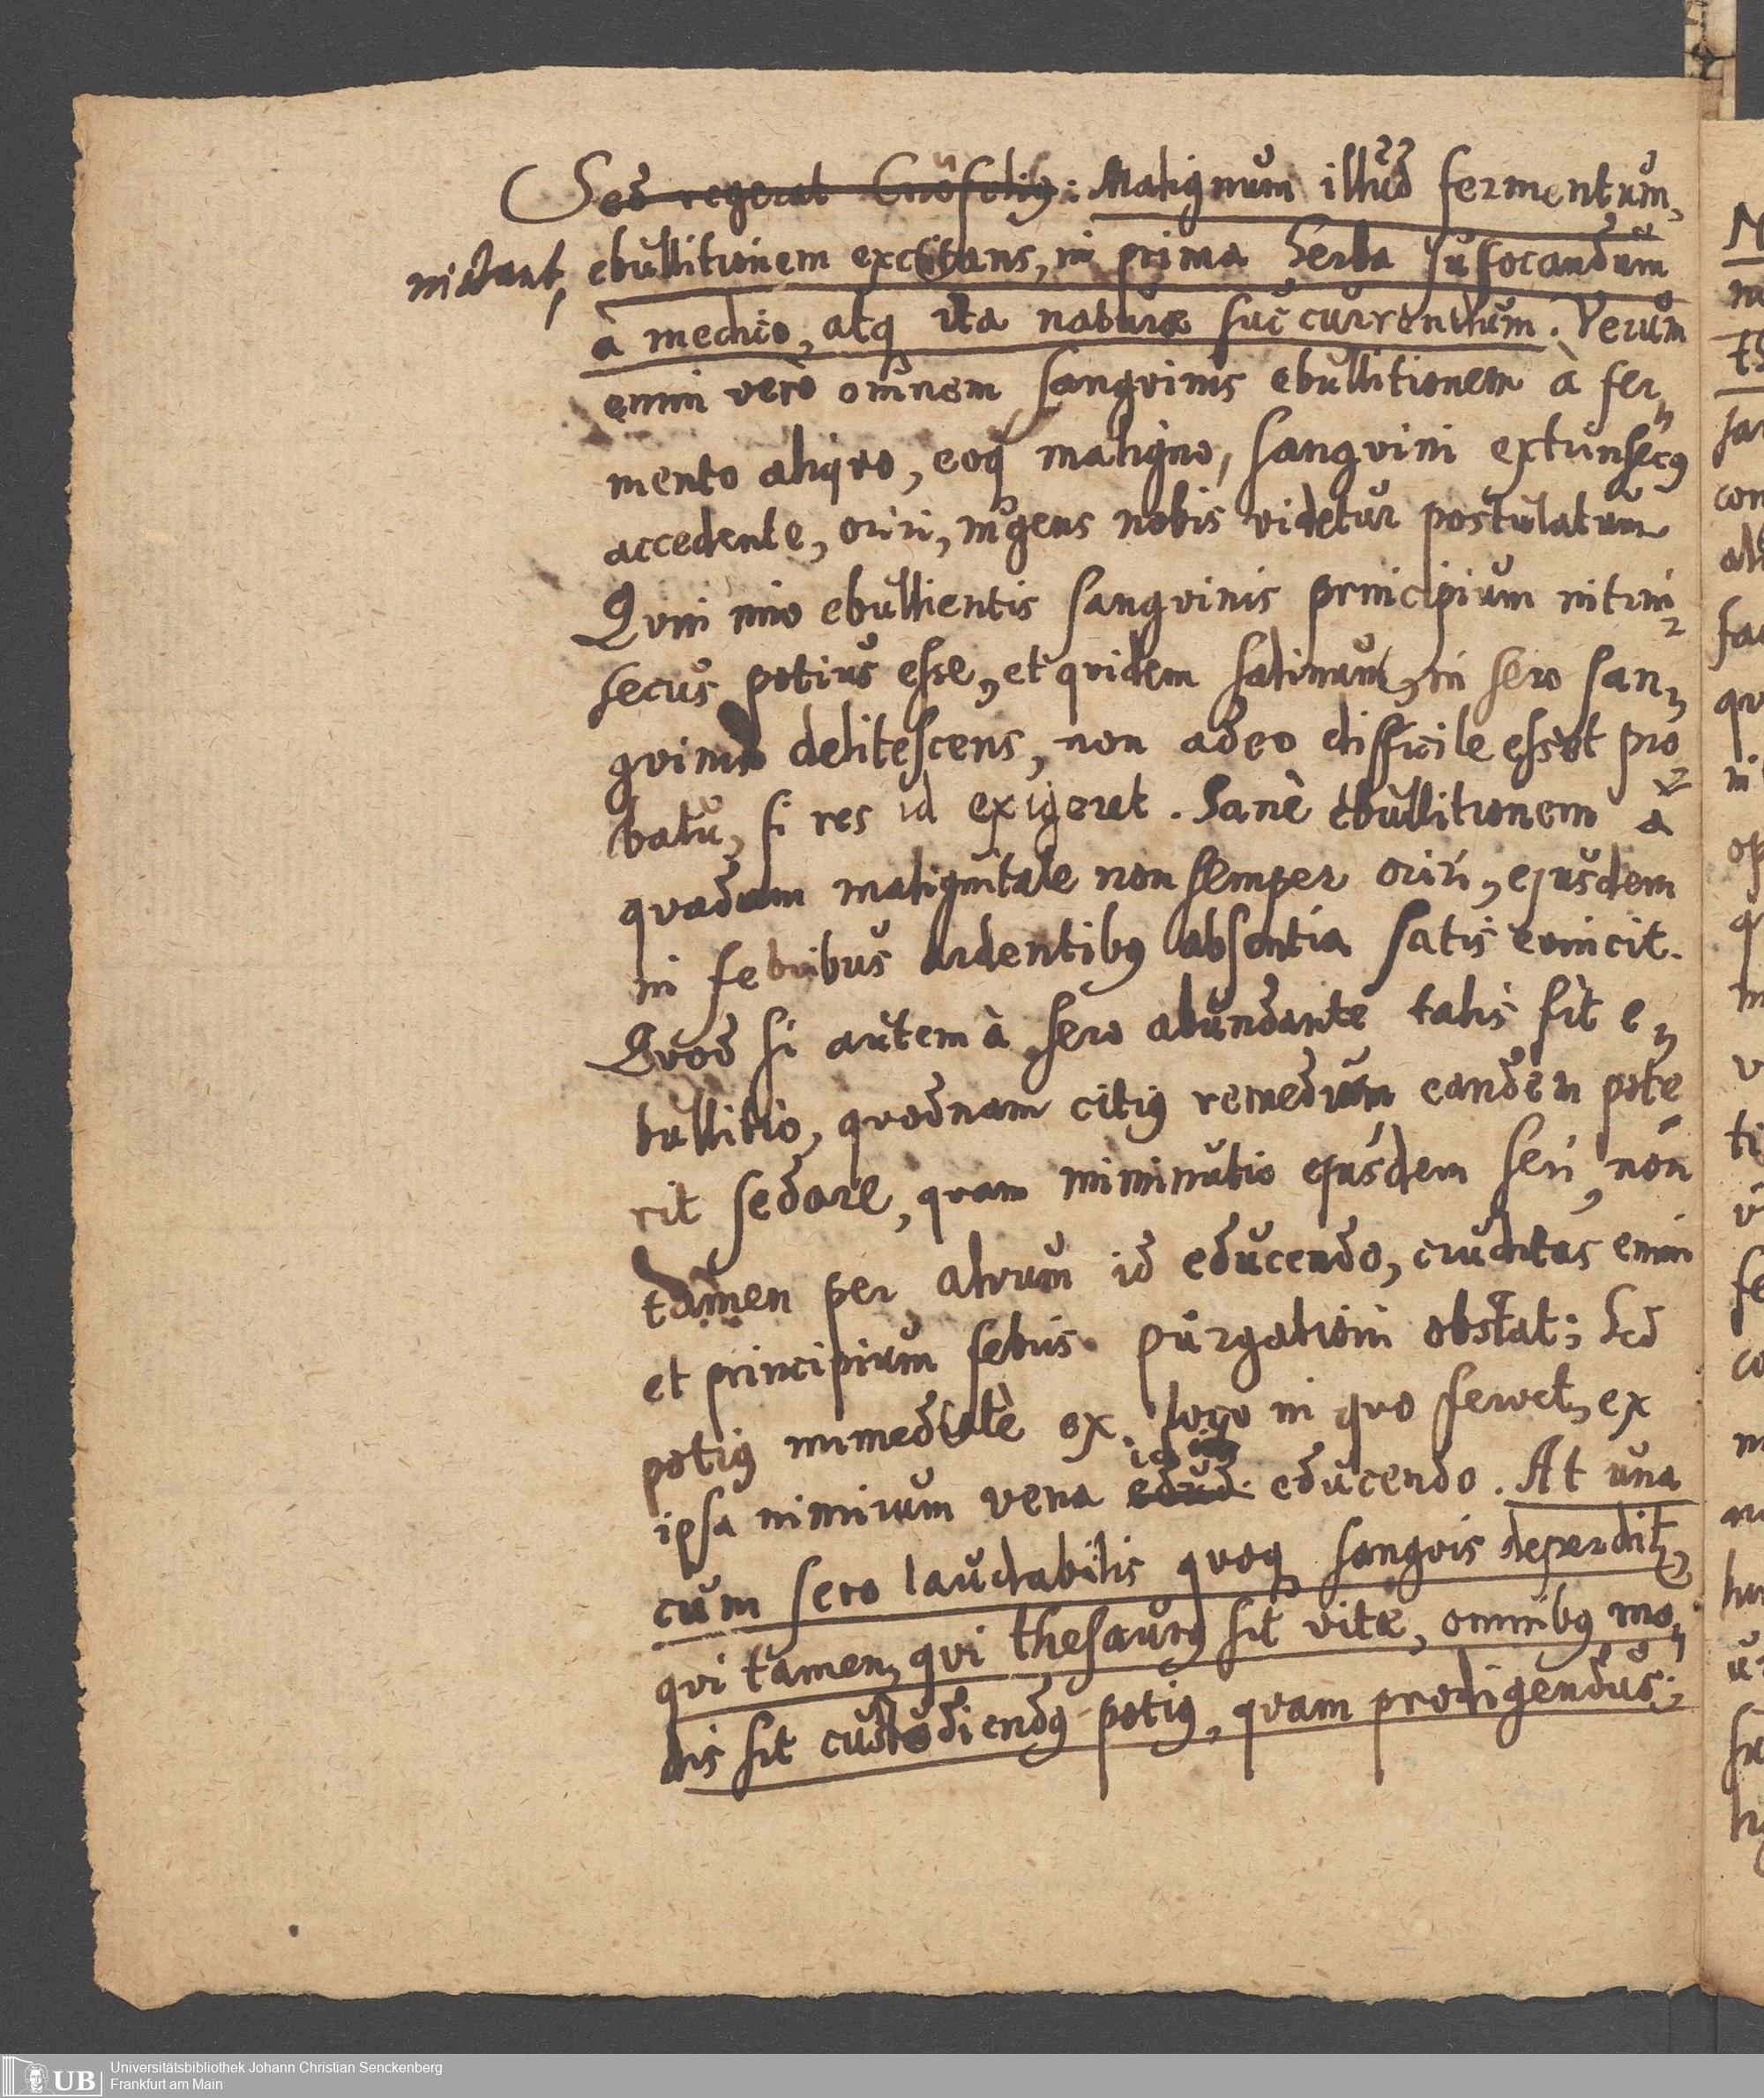 Sed regerat : Malignum illud fermentum,
instant, ebullitionem excitans, in prima herba suffocandum
à medico, atq ita naturæ succurrentum. Verum
enim verò omnem sangvinis ebullitionem à fer„
mento aliqvo, eoq maligno, sangvini extrinsecꝰ
accedente, oriri, ingens nobis videtur postulatum
Qvin imo ebullientis sangvinis principium intrin„
secus potius esse, et qvidem salinum, in sero san„
gvinis delitescens, non adeo difficile esset pro
batu, si res id exigeret. Sanè ebullitionem à
qvadam malignitate non semper oriri, ejusdem
in febribus ardentibꝰ absentia satis evincit.
Qvod si autem à sero abundante talis fit e„
bullitio, qvodnam citiꝰ remedium eandem pote
rit sedare, qvam imminutio ejusdem seri, non
tamen per alvum id educendo, cruditas enim
et principium febris purgationi obstat; Sed
potiꝰ immediatè ex loco in qvo fervet, ex
ipsa nimirum vena id educendo. At una
cum sero laudabilis qvoq sangvis deperdit,
qvi tamen, qvi thesaurꝰ sit vitæ, omnibꝰ mo„
dis sit custodiendꝰ potiꝰ, qvam prodigendus;
Universitätsbibliothek Johann Christian Senckenberg
Frankfurt am Main
UB